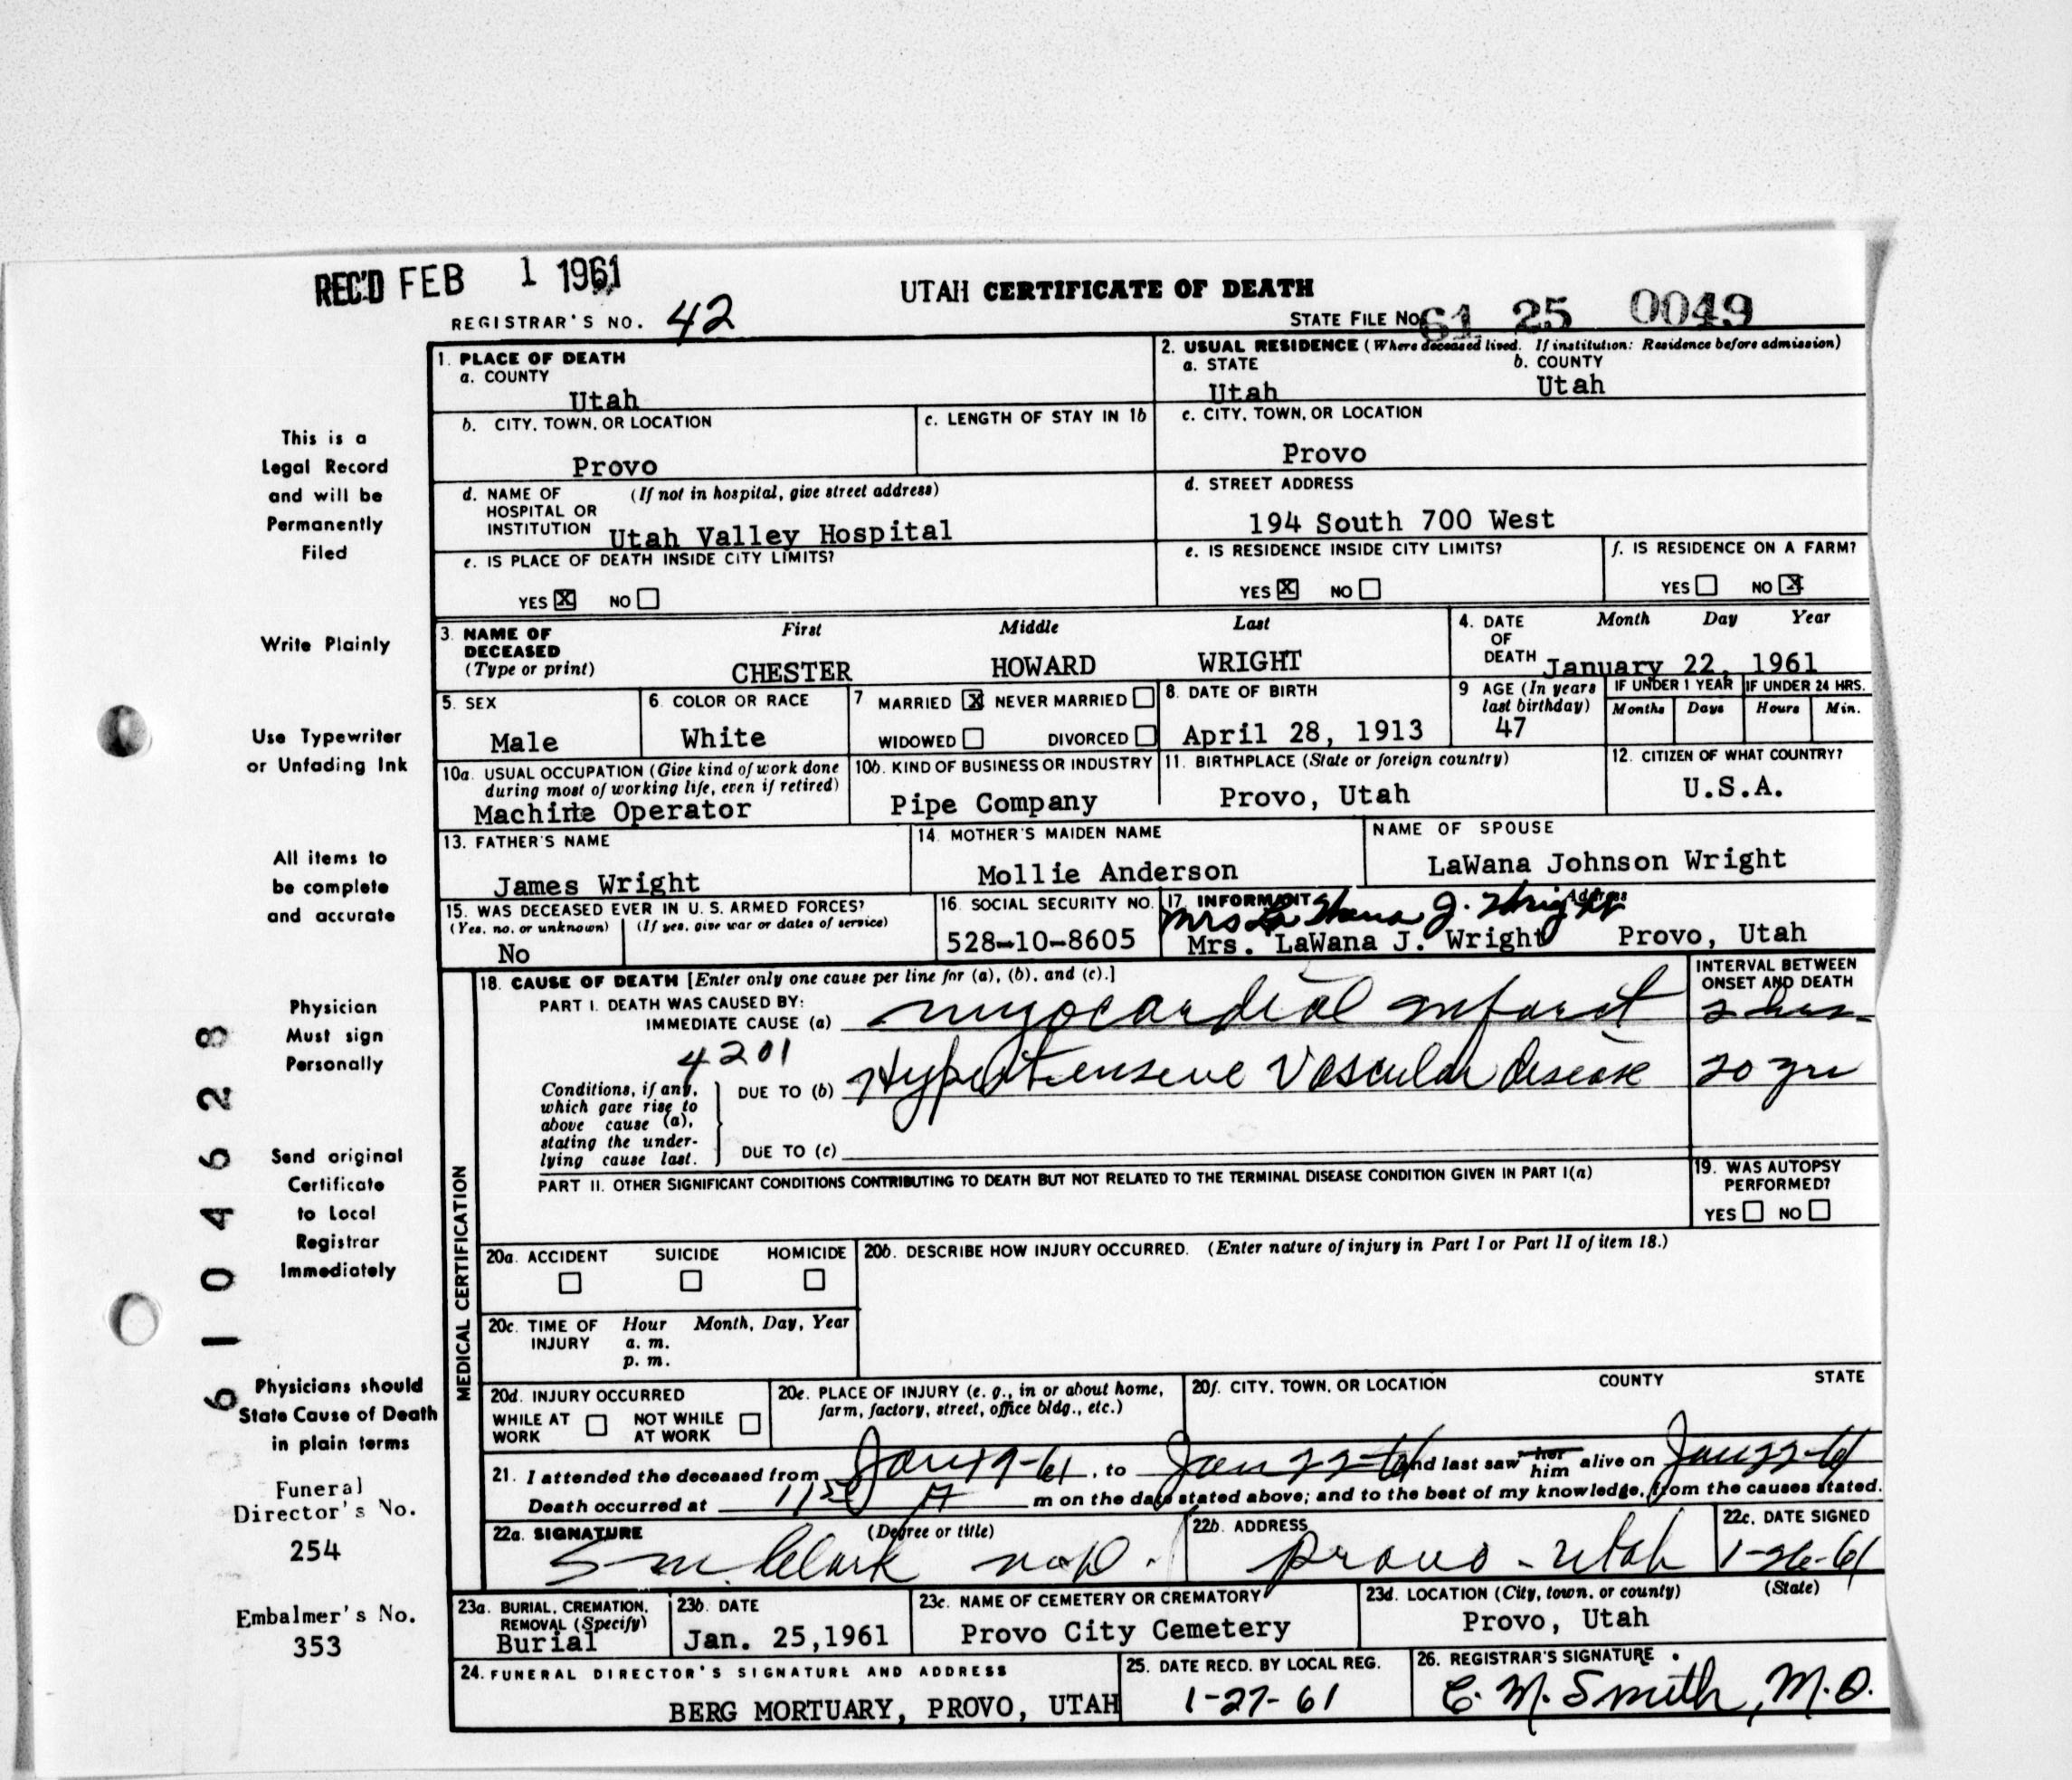 REC'D FEB 1 1961
UTAH CERTIFICATE OF DEATH
REGISTRAR'S NO. 42
STATE FILE NO. 61 25 0049
1. PLACE OF DEATH
a. COUNTY
Utah
2. USUAL RESIDENCE (Where deceased lived. If institution: Residence before admission)
a. STATE
Utah
b. COUNTY
Utah
b. CITY, TOWN, OR LOCATION
Provo
c. LENGTH OF STAY IN 1b
c. CITY, TOWN, OR LOCATION
Provo
d. NAME OF HOSPITAL OR INSTITUTION
(If not in hospital, give street address)
Utah Valley Hospital
d. STREET ADDRESS
194 South 700 West
e. IS PLACE OF DEATH INSIDE CITY LIMITS?
YES X NO
e. IS RESIDENCE INSIDE CITY LIMITS?
YES X NO
f. IS RESIDENCE ON A FARM?
YES NO X
3. NAME OF DECEASED
(Type or print)
First Middle Last
CHESTER HOWARD WRIGHT
4. DATE OF DEATH
Month Day Year
January 22, 1961
5. SEX
Male
6. COLOR OR RACE
White
7 MARRIED X NEVER MARRIED
WIDOWED DIVORCED
8. DATE OF BIRTH
April 28, 1913
9 AGE (In years last birthday)
47
IF UNDER 1 YEAR
Months Days
IF UNDER 24 HRS.
Hours Min.
10a. USUAL OCCUPATION (Give kind of work done during most of working life, even if retired)
Machine Operator
10b. KIND OF BUSINESS OR INDUSTRY
Pipe Company
11. BIRTHPLACE (State or foreign country)
Provo, Utah
12. CITIZEN OF WHAT COUNTRY?
U.S.A.
13. FATHER'S NAME
James Wright
14. MOTHER'S MAIDEN NAME
Mollie Anderson
NAME OF SPOUSE
LaWana Johnson Wright
15. WAS DECEASED EVER IN U. S. ARMED FORCES?
(Yes, no, or unknown) (If yes, give war or dates of service)
No
16. SOCIAL SECURITY NO.
528-10-8605
17. INFORMANT'S Address
Mrs La Wana J. Wright
Mrs. LaWana J. Wright Provo, Utah
MEDICAL CERTIFICATION
18. CAUSE OF DEATH [Enter only one cause per line for (a), (b), and (c).]
INTERVAL BETWEEN ONSET AND DEATH
PART I. DEATH WAS CAUSED BY:
IMMEDIATE CAUSE (a) myocardial infarct 2 hrs.
4201
Conditions, if any, which gave rise to above cause (a), stating the underlying cause last.
DUE TO (b) Hypertensive Vascular disease 20 yrs
DUE TO (c)
PART II. OTHER SIGNIFICANT CONDITIONS CONTRIBUTING TO DEATH BUT NOT RELATED TO THE TERMINAL DISEASE CONDITION GIVEN IN PART I(a)
19. WAS AUTOPSY PERFORMED?
YES NO
20a. ACCIDENT SUICIDE HOMICIDE
20b. DESCRIBE HOW INJURY OCCURRED. (Enter nature of injury in Part I or Part II of item 18.)
20c. TIME OF INJURY
Hour Month, Day, Year
a. m.
p. m.
20d. INJURY OCCURRED
WHILE AT WORK NOT WHILE AT WORK
20e. PLACE OF INJURY (e. g., in or about home, farm, factory, street, office bldg., etc.)
20f. CITY, TOWN, OR LOCATION COUNTY STATE
21. I attended the deceased from Jan 19-61, to Jan 22-61 and last saw her him alive on Jan 22-61
Death occurred at 11 A m on the date stated above; and to the best of my knowledge, from the causes stated.
22a. SIGNATURE (Degree or title)
S M. Clark M.D.
22b. ADDRESS
Provo - Utah
22c. DATE SIGNED
1-26-61
23a. BURIAL, CREMATION, REMOVAL (Specify)
Burial
23b. DATE
Jan. 25,1961
23c. NAME OF CEMETERY OR CREMATORY
Provo City Cemetery
23d. LOCATION (City, town, or county) (State)
Provo, Utah
24. FUNERAL DIRECTOR'S SIGNATURE AND ADDRESS
BERG MORTUARY, PROVO, UTAH
25. DATE RECD. BY LOCAL REG.
1-27-61
26. REGISTRAR'S SIGNATURE
C. M. Smith, M.D.
This is a
Legal Record
and will be
Permanently
Filed
Write Plainly
Use Typewriter
or Unfading Ink
All items to
be complete
and accurate
Physician
Must sign
Personally
Send original
Certificate
to Local
Registrar
Immediately
Physicians should
State Cause of Death
in plain terms
Funeral
Director's No.
254
Embalmer's No.
353
6104628